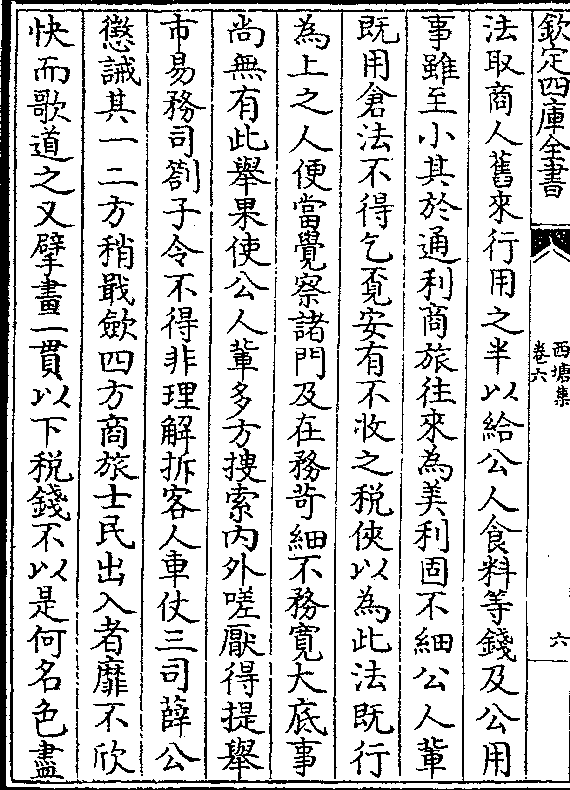 欽定四庫全書
西塘集
卷六
六
法取商人舊來行用之半以給公人食料等錢及公用
事雖至小其於通利商旅往來為美利固不細公人輩
既用倉法不得乞覓安有不收之稅俠以為此法既行
為上之人便當覺察諸門及在務苛細不務寛大底事
尚無有此舉果使公人輩多方搜索內外嗟厭得提舉
市易務司劄子令不得非理解拆客人車仗三司薛公
懲誡其一二方稍戢歛四方商旅士民出入者靡不欣
快而歌道之又擘畫一貫以下税錢不以是何名色盡